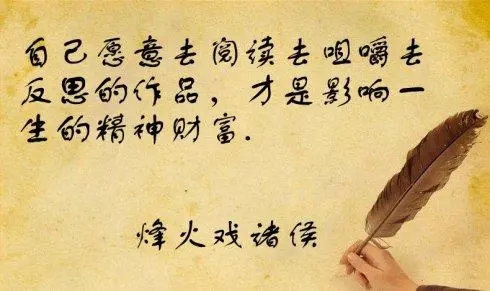 自己愿意去阅读去咀嚼去
反思的作品，才是影响一
生的精神财富.
烽火戏诸侯